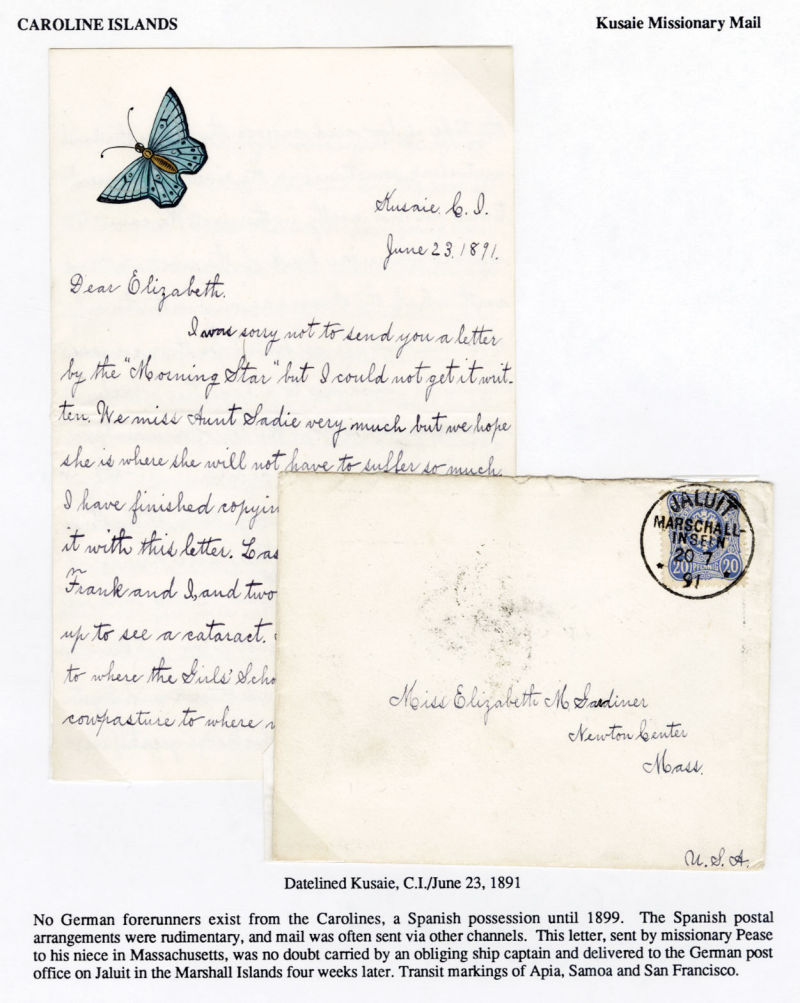 CAROLINE ISLANDS
Kusaie Missionary Mail
Kusaie. C. I.
June 23. 1891.
Dear Elizabeth.
I was sorry not to send you a letter
by the "Morning Star" but I could not get it writ-
ten. We miss Aunt Sadie very much but we hope
she is where she will not have to suffer so much.
I have finished copyin
it with this letter. Las
Frank and I, and two
up to see a cataract.
to where the Girls' Scho
cowpasture to where
JALUIT
MARSCHALL-
INSELN
20 7
91
20 PFENNIG 20
Miss Elizabeth M Gardiner
Newton Center
Mass.
U. S. A.
Datelined Kusaie, C.I./June 23, 1891
No German forerunners exist from the Carolines, a Spanish possession until 1899. The Spanish postal
arrangements were rudimentary, and mail was often sent via other channels. This letter, sent by missionary Pease
to his niece in Massachusetts, was no doubt carried by an obliging ship captain and delivered to the German post
office on Jaluit in the Marshall Islands four weeks later. Transit markings of Apia, Samoa and San Francisco.